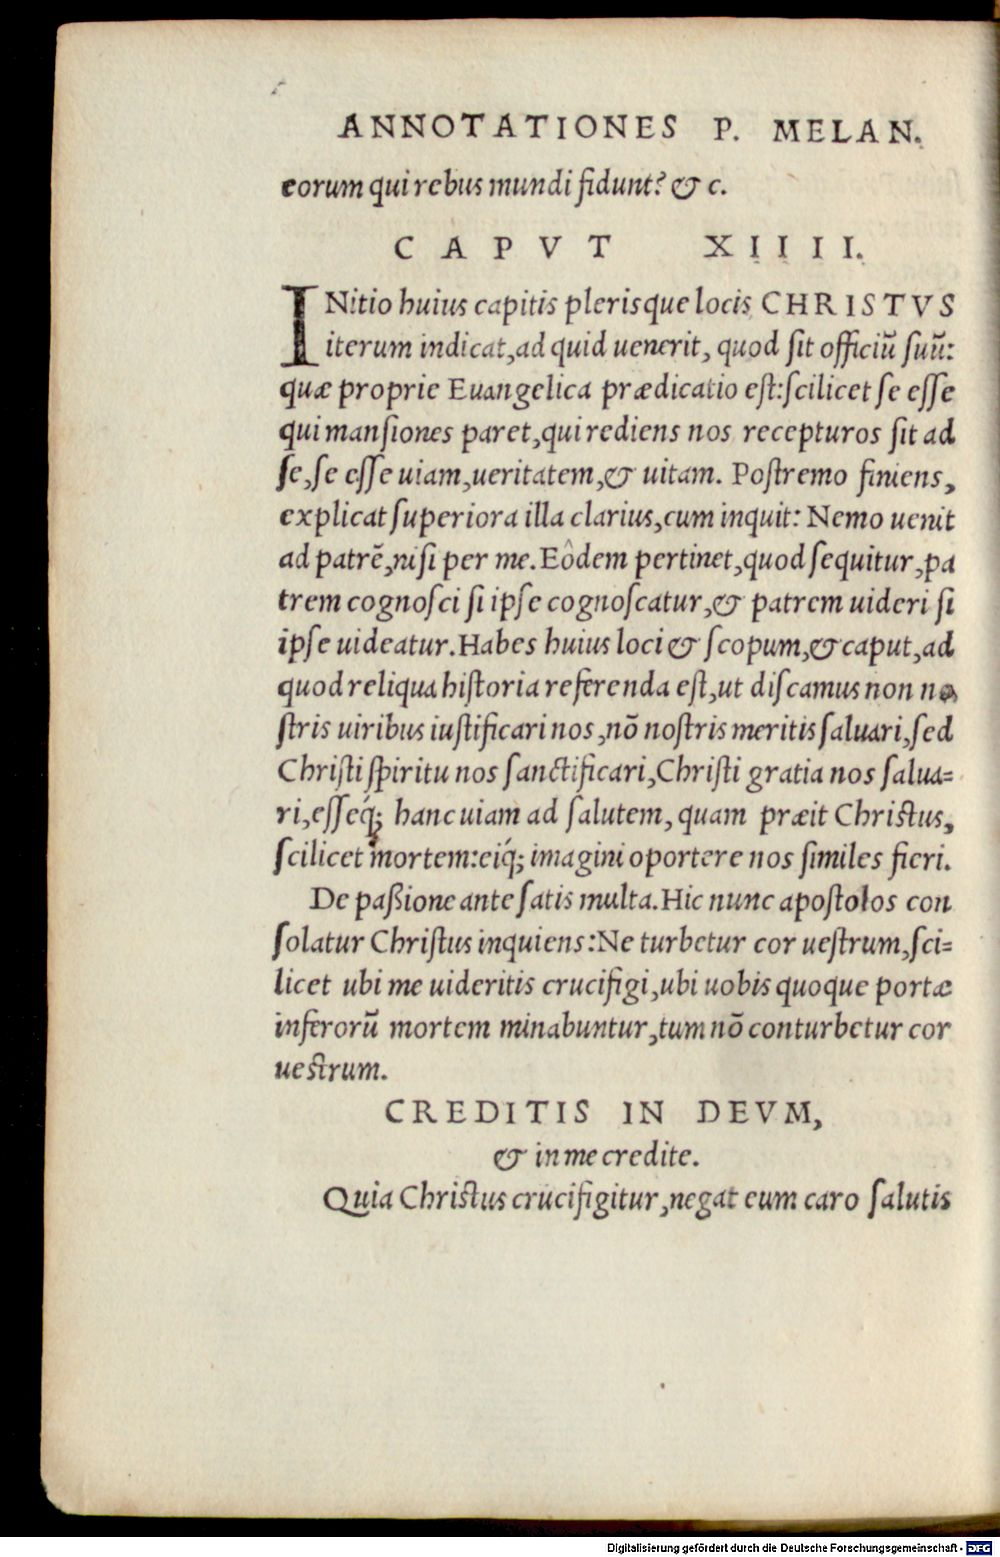 ANNOTATIONES P. MELAN.
eorum qui rebus mundi fidunt? & c.
CAPVT XIIII.
INitio huius capitis plerisque locis CHRISTVS
iterum indicat, ad quid uenerit, quod ſit officiũ ſuũ:
quæ proprie Euangelica prædicatio eſt: ſcilicet ſe eſſe
qui manſiones paret, qui rediens nos recepturos ſit ad
ſe, ſe eſſe uiam, ueritatem, & uitam. Poſtremo finiens,
explicat ſuperiora illa clarius, cum inquit: Nemo uenit
ad patrẽ, niſi per me. Eôdem pertinet, quod ſequitur, pa
trem cognoſci ſi ipſe cognoſcatur, & patrem uideri ſi
ipſe uideatur. Habes huius loci & ſcopum, & caput, ad
quod reliqua hiſtoria referenda eſt, ut diſcamus non no
ſtris uiribus iuſtificari nos, nõ noſtris meritis ſaluari, ſed
Chriſti ſpiritu nos ſanctificari, Chriſti gratia nos ſalua=
ri, eſſeq́; hanc uiam ad ſalutem, quam præit Chriſtus,
ſcilicet mortem: eiq́; imagini oportere nos ſimiles fieri.
De paßione ante ſatis multa. Hic nunc apoſtolos con
ſolatur Chriſtus inquiens: Ne turbetur cor ueſtrum, ſci=
licet ubi me uideritis crucifigi, ubi uobis quoque portæ
inferorũ mortem minabuntur, tum nõ conturbetur cor
ueſtrum.
CREDITIS IN DEVM,
& in me credite.
Quia Chriſtus crucifigitur, negat eum caro ſalutis
Digitalisierung gefördert durch die Deutsche Forschungsgemeinschaft - DFG